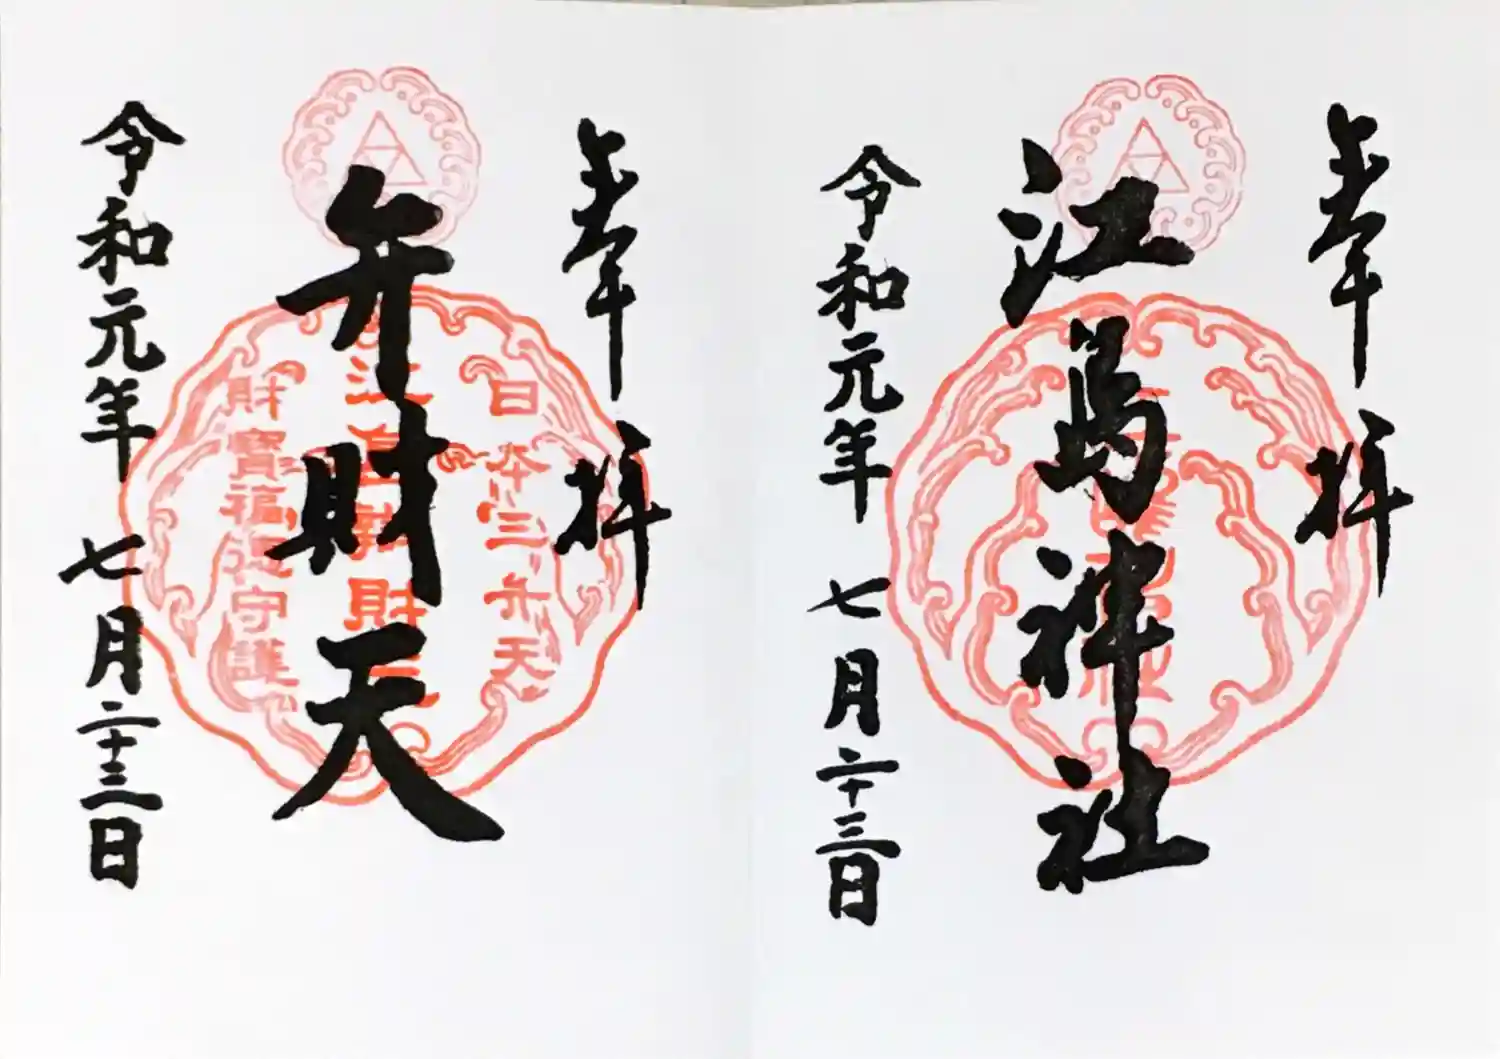 奉拝
江島神社
令和元年 七月二十三日
奉拝
弁財天
令和元年 七月二十三日
日本三弁天
財寶福徳守護